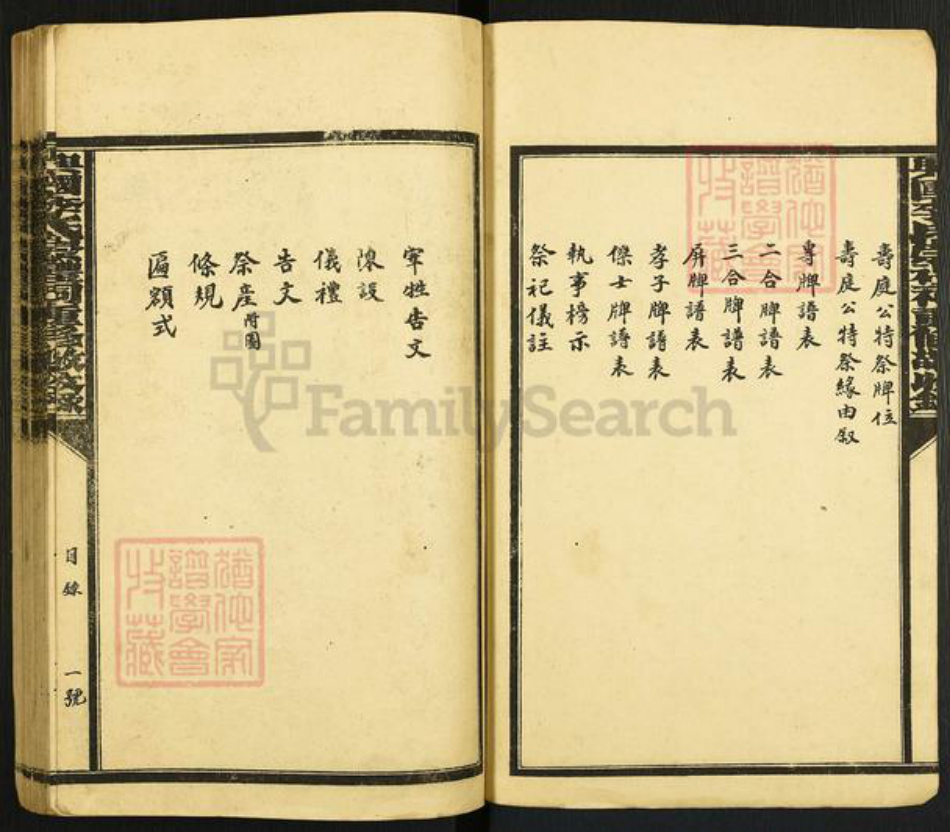 壽庭公特祭牌位
壽庭公特祭緣由叙
專牌譜表
二合牌譜表
三合牌譜表
屏牌譜表
孝子牌譜表
傑士牌譜表
執事榜示
祭祀儀註
宰牲告文
陳設
儀禮
告文
祭産附圖
條規
匾額式
目錄
一號
FamilySearch